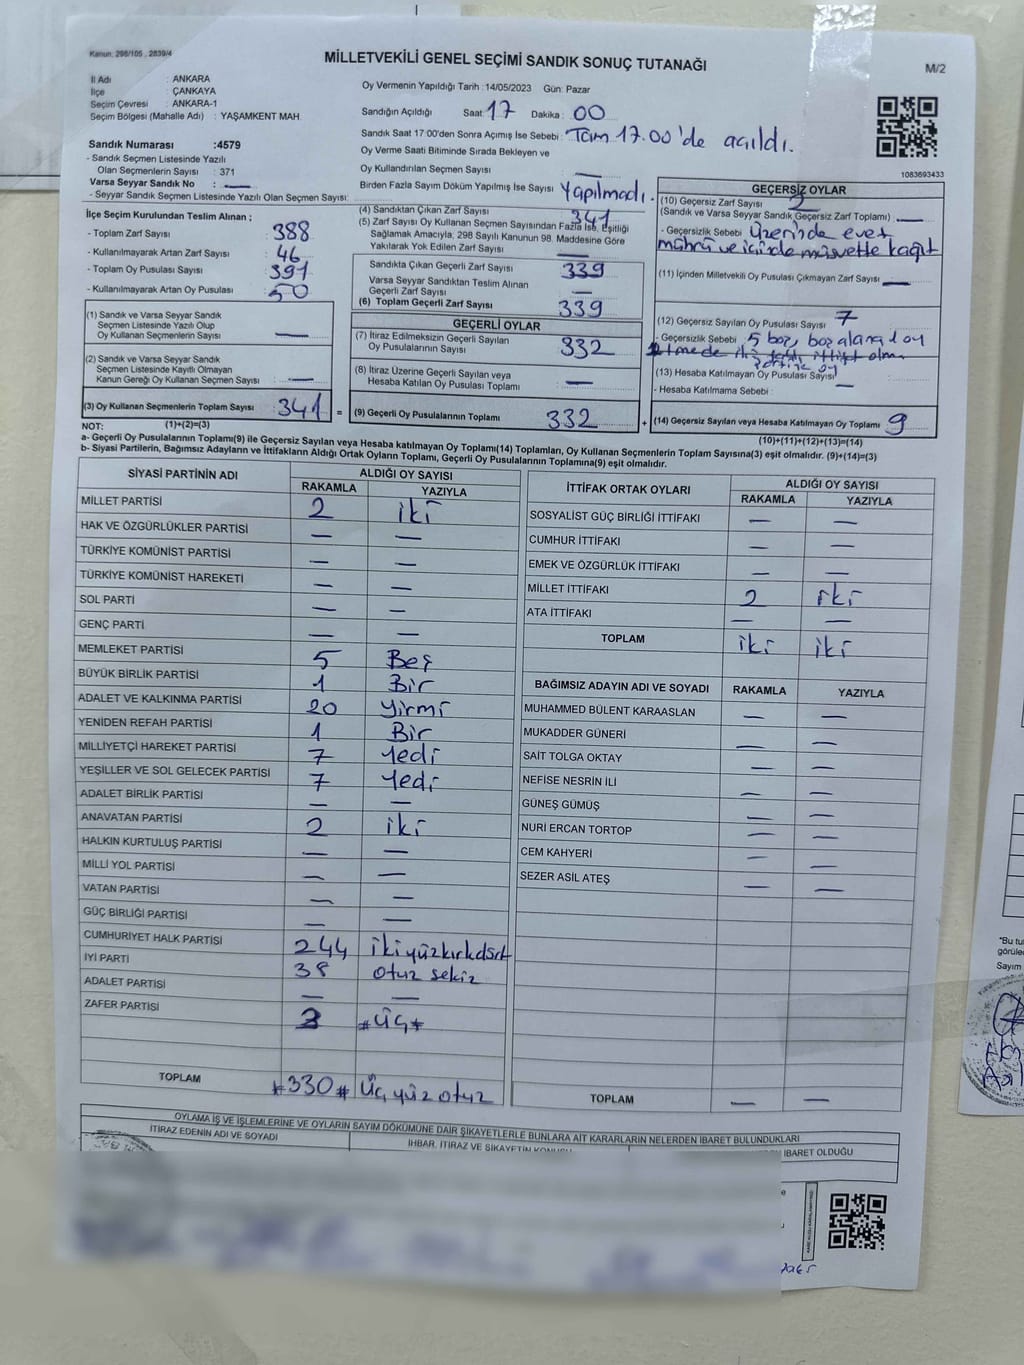 Kanun: 298/105 , 2839/4
MİLLETVEKİLİ GENEL SEÇİMİ SANDIK SONUÇ TUTANAĞI
M/2
İl Adı : ANKARA
İlçe : ÇANKAYA
Seçim Çevresi : ANKARA-1
Seçim Bölgesi (Mahalle Adı) : YAŞAMKENT MAH.
Oy Vermenin Yapıldığı Tarih : 14/05/2023 Gün: Pazar
Sandığın Açıldığı Saat: 17 Dakika: 00
Sandık Saat 17:00'den Sonra Açımış İse Sebebi: Tam 17.00'de açıldı.
Oy Verme Saati Bitiminde Sırada Bekleyen ve
Oy Kullandırılan Seçmen Sayısı :
Birden Fazla Sayım Döküm Yapılmış İse Sayısı Yapılmadı.
1083693433
Sandık Numarası :4579
- Sandık Seçmen Listesinde Yazılı
Olan Seçmenlerin Sayısı : 371
Varsa Seyyar Sandık No : —
- Seyyar Sandık Seçmen Listesinde Yazılı Olan Seçmen Sayısı:
İlçe Seçim Kurulundan Teslim Alınan ;
- Toplam Zarf Sayısı : 388
- Kullanılmayarak Artan Zarf Sayısı : 46
- Toplam Oy Pusulası Sayısı : 391
- Kullanılmayarak Artan Oy Pusulası : 50
(1) Sandık ve Varsa Seyyar Sandık
Seçmen Listesinde Yazılı Olup
Oy Kullanan Seçmenlerin Sayısı : —
(2) Sandık ve Varsa Seyyar Sandık
Seçmen Listesinde Kayıtlı Olmayan
Kanun Gereği Oy Kullanan Seçmen Sayısı : —
(3) Oy Kullanan Seçmenlerin Toplam Sayısı : 341
(1)+(2)=(3)
(4) Sandıktan Çıkan Zarf Sayısı : 341
(5) Zarf Sayısı Oy Kullanan Seçmen Sayısından Fazla İse, Eşitliği
Sağlamak Amacıyla, 298 Sayılı Kanunun 98. Maddesine Göre
Yakılarak Yok Edilen Zarf Sayısı : —
Sandıkta Çıkan Geçerli Zarf Sayısı : 339
Varsa Seyyar Sandıktan Teslim Alınan
Geçerli Zarf Sayısı : —
(6) Toplam Geçerli Zarf Sayısı : 339
GEÇERLİ OYLAR
(7) İtiraz Edilmeksizin Geçerli Sayılan
Oy Pusulalarının Sayısı : 332
(8) İtiraz Üzerine Geçerli Sayılan veya
Hesaba Katılan Oy Pusulası Toplamı : —
= (9) Geçerli Oy Pusulalarının Toplamı : 332 +
GEÇERSİZ OYLAR
(10) Geçersiz Zarf Sayısı : 2
(Sandık ve Varsa Seyyar Sandık Geçersiz Zarf Toplamı) —
- Geçersizlik Sebebi : Üzerinde evet
mührü ve içinde müsvette kağıt
(11) İçinden Milletvekili Oy Pusulası Çıkmayan Zarf Sayısı: —
(12) Geçersiz Sayılan Oy Pusulası Sayısı : 7
- Geçersizlik Sebebi : 5 boş, boş alana 1 oy
(13) Hesaba Katılmayan Oy Pusulası Sayısı : —
- Hesaba Katılmama Sebebi :
(14) Geçersiz Sayılan veya Hesaba Katılmayan Oy Toplamı : 9
(10)+(11)+(12)+(13)=(14)
NOT:
a- Geçerli Oy Pusulalarının Toplamı(9) ile Geçersiz Sayılan veya Hesaba katılmayan Oy Toplamı(14) Toplamları, Oy Kullanan Seçmenlerin Toplam Sayısına(3) eşit olmalıdır. (9)+(14)=(3)
b- Siyasi Partilerin, Bağımsız Adayların ve İttifakların Aldığı Ortak Oyların Toplamı, Geçerli Oy Pusulalarının Toplamına(9) eşit olmalıdır.
SİYASİ PARTİNİN ADI ALDIĞI OY SAYISI
RAKAMLA YAZIYLA
MİLLET PARTİSİ 2 iki
HAK VE ÖZGÜRLÜKLER PARTİSİ — —
TÜRKİYE KOMÜNİST PARTİSİ — —
TÜRKİYE KOMÜNİST HAREKETİ — —
SOL PARTİ — —
GENÇ PARTİ — —
MEMLEKET PARTİSİ 5 Beş
BÜYÜK BİRLİK PARTİSİ 1 Bir
ADALET VE KALKINMA PARTİSİ 20 Yirmi
YENİDEN REFAH PARTİSİ 1 Bir
MİLLİYETÇİ HAREKET PARTİSİ 7 Yedi
YEŞİLLER VE SOL GELECEK PARTİSİ 7 Yedi
ADALET BİRLİK PARTİSİ — —
ANAVATAN PARTİSİ 2 iki
HALKIN KURTULUŞ PARTİSİ — —
MİLLİ YOL PARTİSİ — —
VATAN PARTİSİ — —
GÜÇ BİRLİĞİ PARTİSİ — —
CUMHURİYET HALK PARTİSİ 244 ikiyüzkırkdört
İYİ PARTİ 38 otuz sekiz
ADALET PARTİSİ — —
ZAFER PARTİSİ 3 #Üç#
TOPLAM #330# Üç yüz otuz
İTTİFAK ORTAK OYLARI ALDIĞI OY SAYISI
RAKAMLA YAZIYLA
SOSYALİST GÜÇ BİRLİĞİ İTTİFAKI — —
CUMHUR İTTİFAKI — —
EMEK VE ÖZGÜRLÜK İTTİFAKI — —
MİLLET İTTİFAKI 2 iki
ATA İTTİFAKI — —
TOPLAM iki iki
BAĞIMSIZ ADAYIN ADI VE SOYADI RAKAMLA YAZIYLA
MUHAMMED BÜLENT KARAASLAN — —
MUKADDER GÜNERİ — —
SAİT TOLGA OKTAY — —
NEFİSE NESRİN İLİ — —
GÜNEŞ GÜMÜŞ — —
NURİ ERCAN TORTOP — —
CEM KAHYERİ — —
SEZER ASİL ATEŞ — —
TOPLAM — —
OYLAMA İŞ VE İŞLEMLERİNE VE OYLARIN SAYIM DÖKÜMÜNE DAİR ŞİKAYETLERLE BUNLARA AİT KARARLARIN NELERDEN İBARET BULUNDUKLARI
İTİRAZ EDENİN ADI VE SOYADI
İHBAR, İTİRAZ VE ŞİKAYETİN KONUSU
İBARET OLDUĞU
"Bu tu
görüle
Sayım